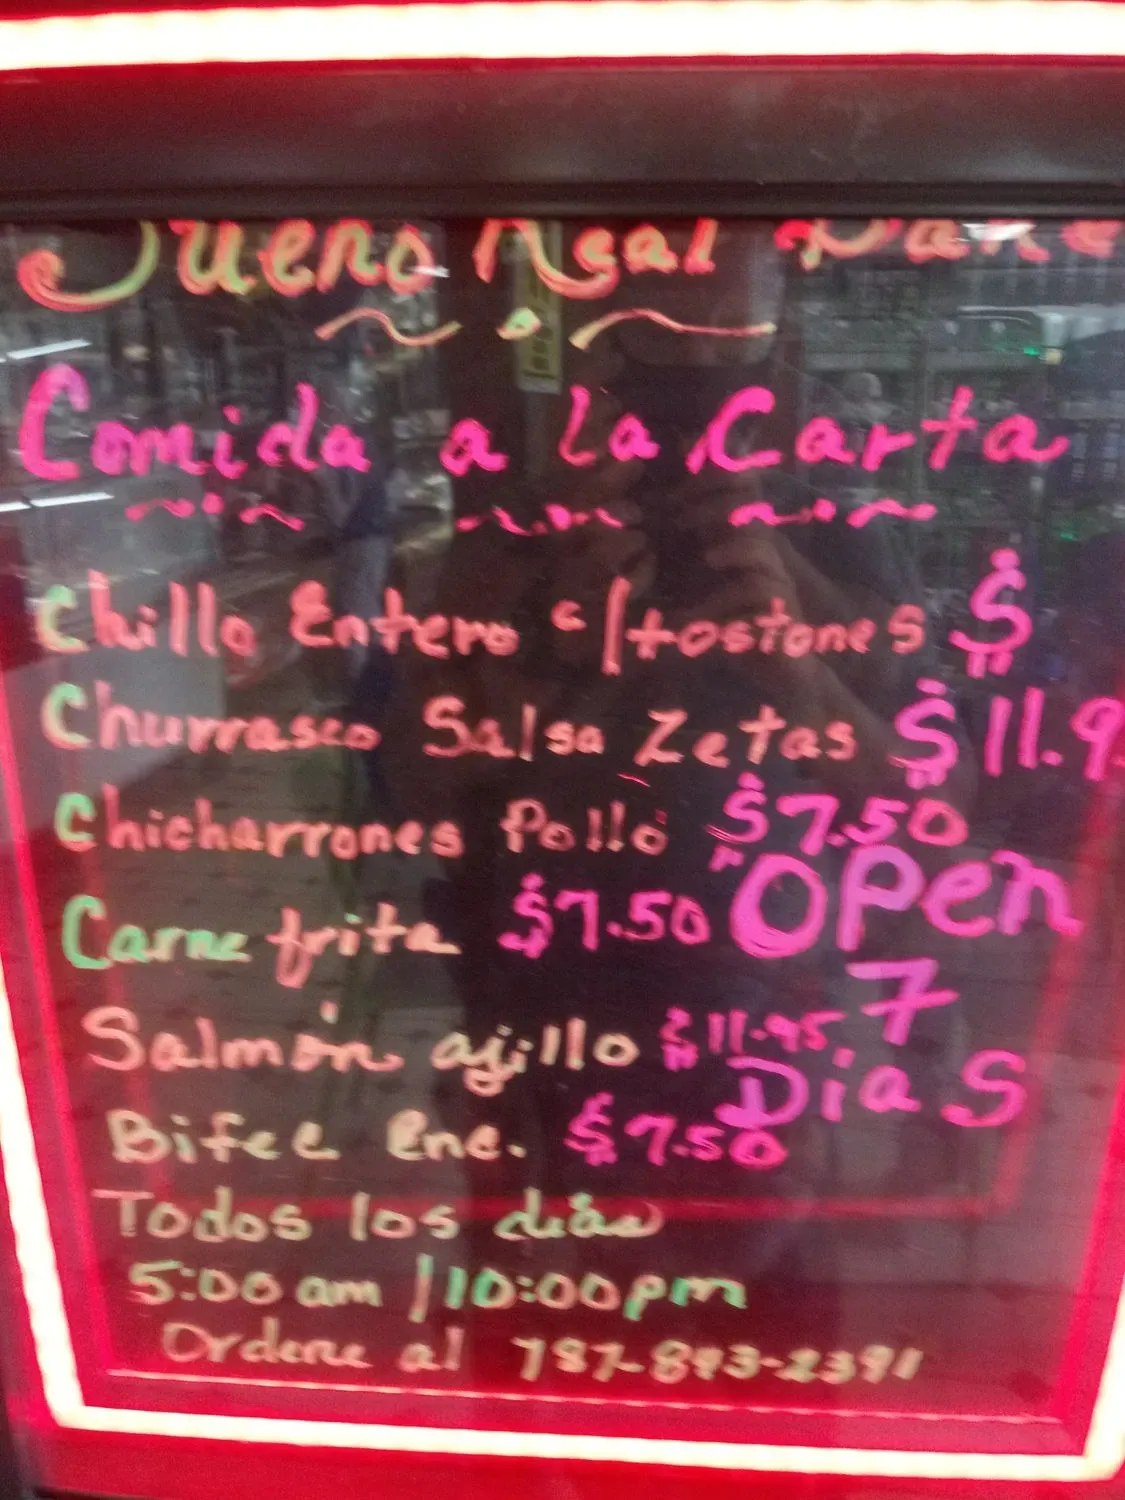 Sueño Real
Comida a la Carta
Chillo Entero c/tostones $
Churrasco Salsa Zetas $11.9
Chicharrones Pollo $7.50
Carne frita $7.50
Open
7
Dias
Salmón ajillo $11.95
Bifec enc. $7.50
Todos los días
5:00 am / 10:00 pm
Ordene al 787-893-2391